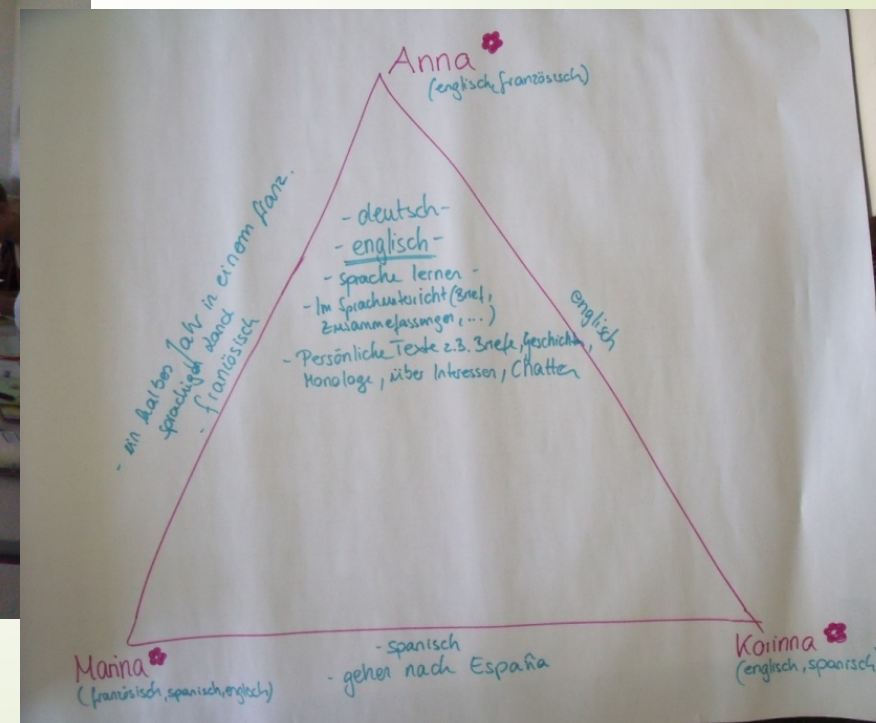 Anna
(englisch, französisch)
- ein halbes Jahr in einem franz.
sprachigen Land
- französisch
- deutsch -
- englisch -
- sprache lernen -
- Im Sprachunterricht (Brief,
Zusammefassungen, ...)
- Persönliche Texte z.B. Briefe, Geschichten,
Monologe, über Interessen, Chatten
englisch
Marina
(französisch, spanisch, englisch)
- spanisch
- gehen nach España
Korinna
(englisch, spanisch)